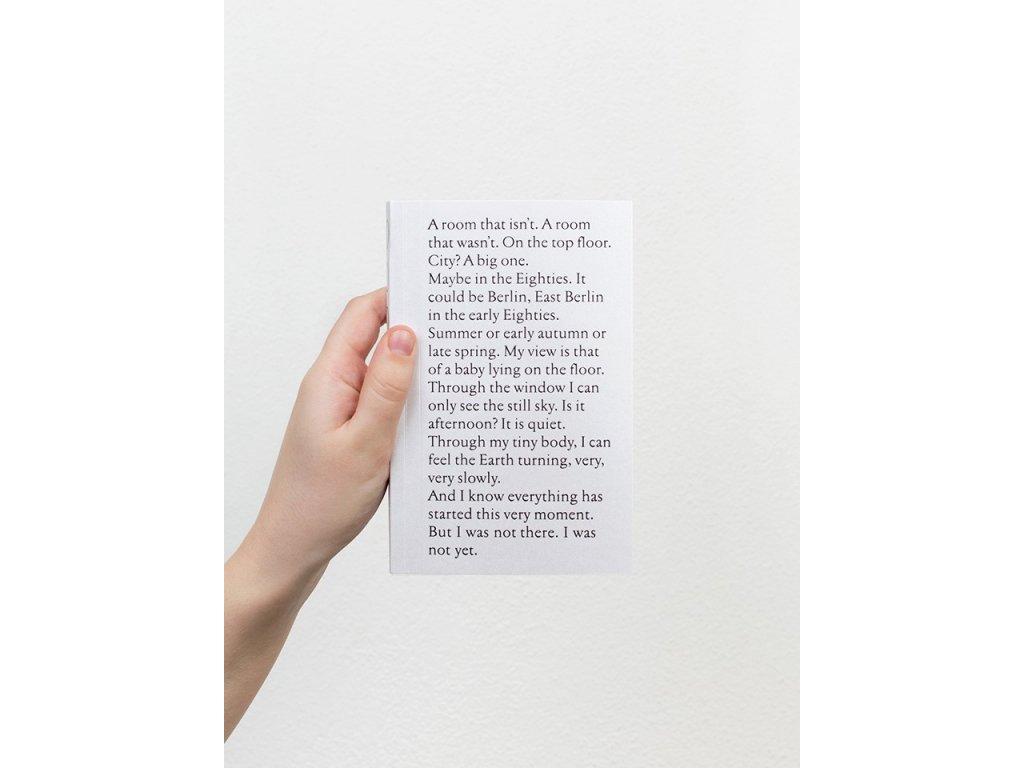 A room that isn't. A room
that wasn't. On the top floor.
City? A big one.
Maybe in the Eighties. It
could be Berlin, East Berlin
in the early Eighties.
Summer or early autumn or
late spring. My view is that
of a baby lying on the floor.
Through the window I can
only see the still sky. Is it
afternoon? It is quiet.
Through my tiny body, I can
feel the Earth turning, very,
very slowly.
And I know everything has
started this very moment.
But I was not there. I was
not yet.